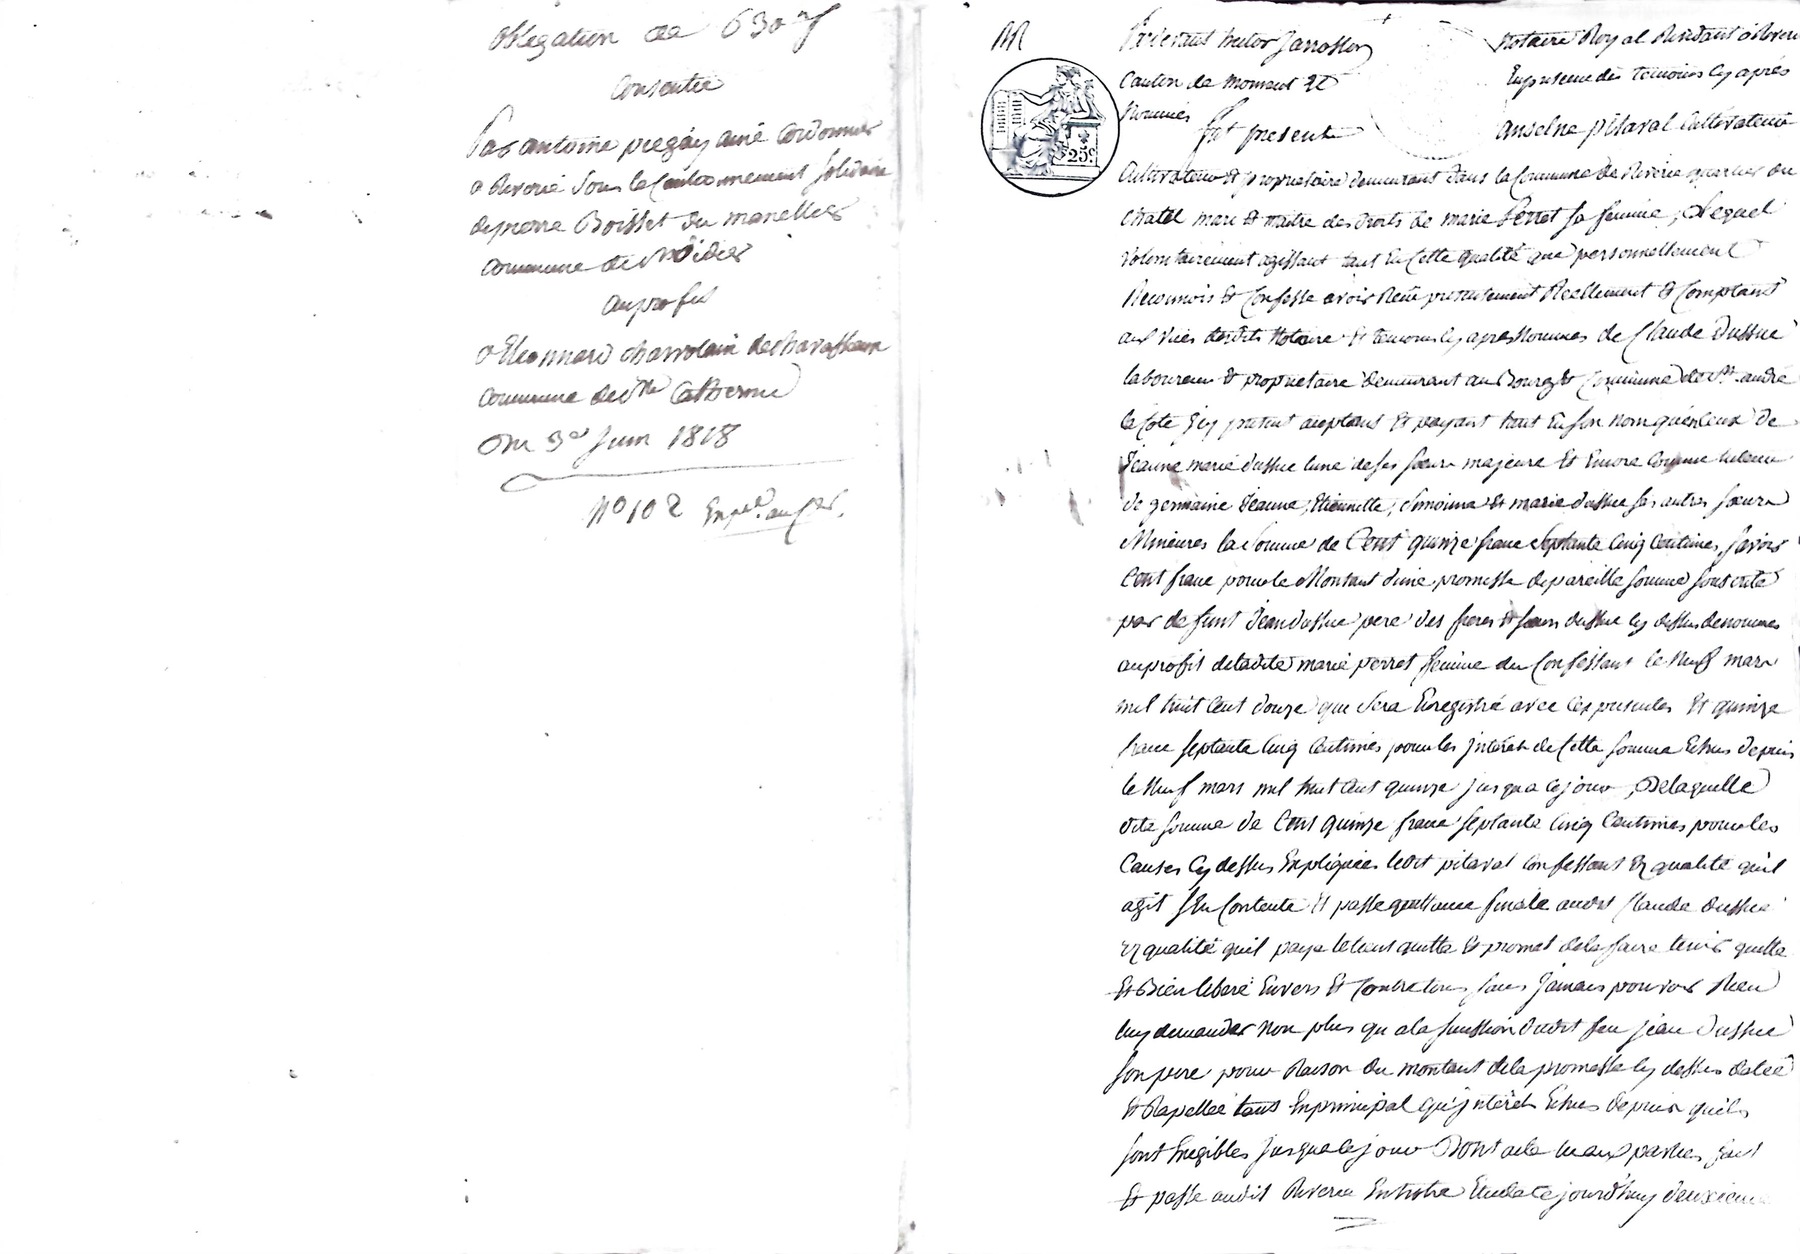 obligation de 630 f
Consentie
Par antoine piegay ainé Cordonnier
a Riverie sous le Cautionnement solidaire
de pierre Boisset du
Commune de St Didier
au profit
a Eleonnard charvolain de charassan
Commune de Ste Catherine
Du 3e Juin 1818
No 102 Exp.
Pardevant hector Jarrosson notaire Royal Residant a Riverie
Canton de Mornant Et En presence des temoins Cy après
Nommés
fut present anselme pitaval Cultivateur
25c
Cultivateur & proprietaire demeurant dans la Commune de Riverie quartier du
Chatel mari & maitre des droits de marie Perret sa femme, Lequel
volontairement agissant tant En Cette qualité que personnellement
Reconnois & Confesse avoir Reçu presentement Reellement & Comptant
aux vües desdits Notaire & temoins Cy apres Nommés de Claude dussuc
laboureur & proprietaire demeurant au Bourg & Commune de St. andré
la Cote Icy present acceptant & payant tant En son nom qu'en Ceux de
Jeanne marie dussuc lune de ses sœurs majeure Et Encore Comme tuteur
de germaine Jeanne, Etiennette, Simoinne & marie dussuc ses autres sœurs
Mineures la Somme de Cent quinze francs septante Cinq Centimes, savoir
Cent francs pour le Montant d'une promesse de pareille somme souscrite
par defunt Jean dussuc pere des freres & sœurs dussuc Cy dessus denommés
au profit de ladite marie perret femme du Confessant le Neuf mars
mil huit Cent douze qui sera Enregistré avec Ces presentes Et quinze
francs septante Cinq Centimes pour les Interets de Cette somme Echus depuis
le Neuf mars mil huit Cent quinze jusqua Ce jour, De laquelle
dite somme de Cent quinze francs septante Cinq Centimes pour les
Causes Cy dessus Expliquées ledit pitaval Confessant En qualité qu'il
agit s'En Contente Et passe quittance finale audit Claude dussuc
En qualité quil paye le tient quitte & promet de le faire tenir quitte
Et Bien liberé Envers Et Contre tous sans Jamais pouvoir Rien
luy demander Non plus qu a la sucssion dudit feu jean dussuc
son pere pour Raison du montant de la promesse Cy dessus datée
Et Rapellée tant En principal qu'Interets Echus depuis quils
sont Exigibles Jusqua Ce jour Dont acte aux parties fait
Et passé audit Riverie En Etude Ce jourd'huy deuxieme